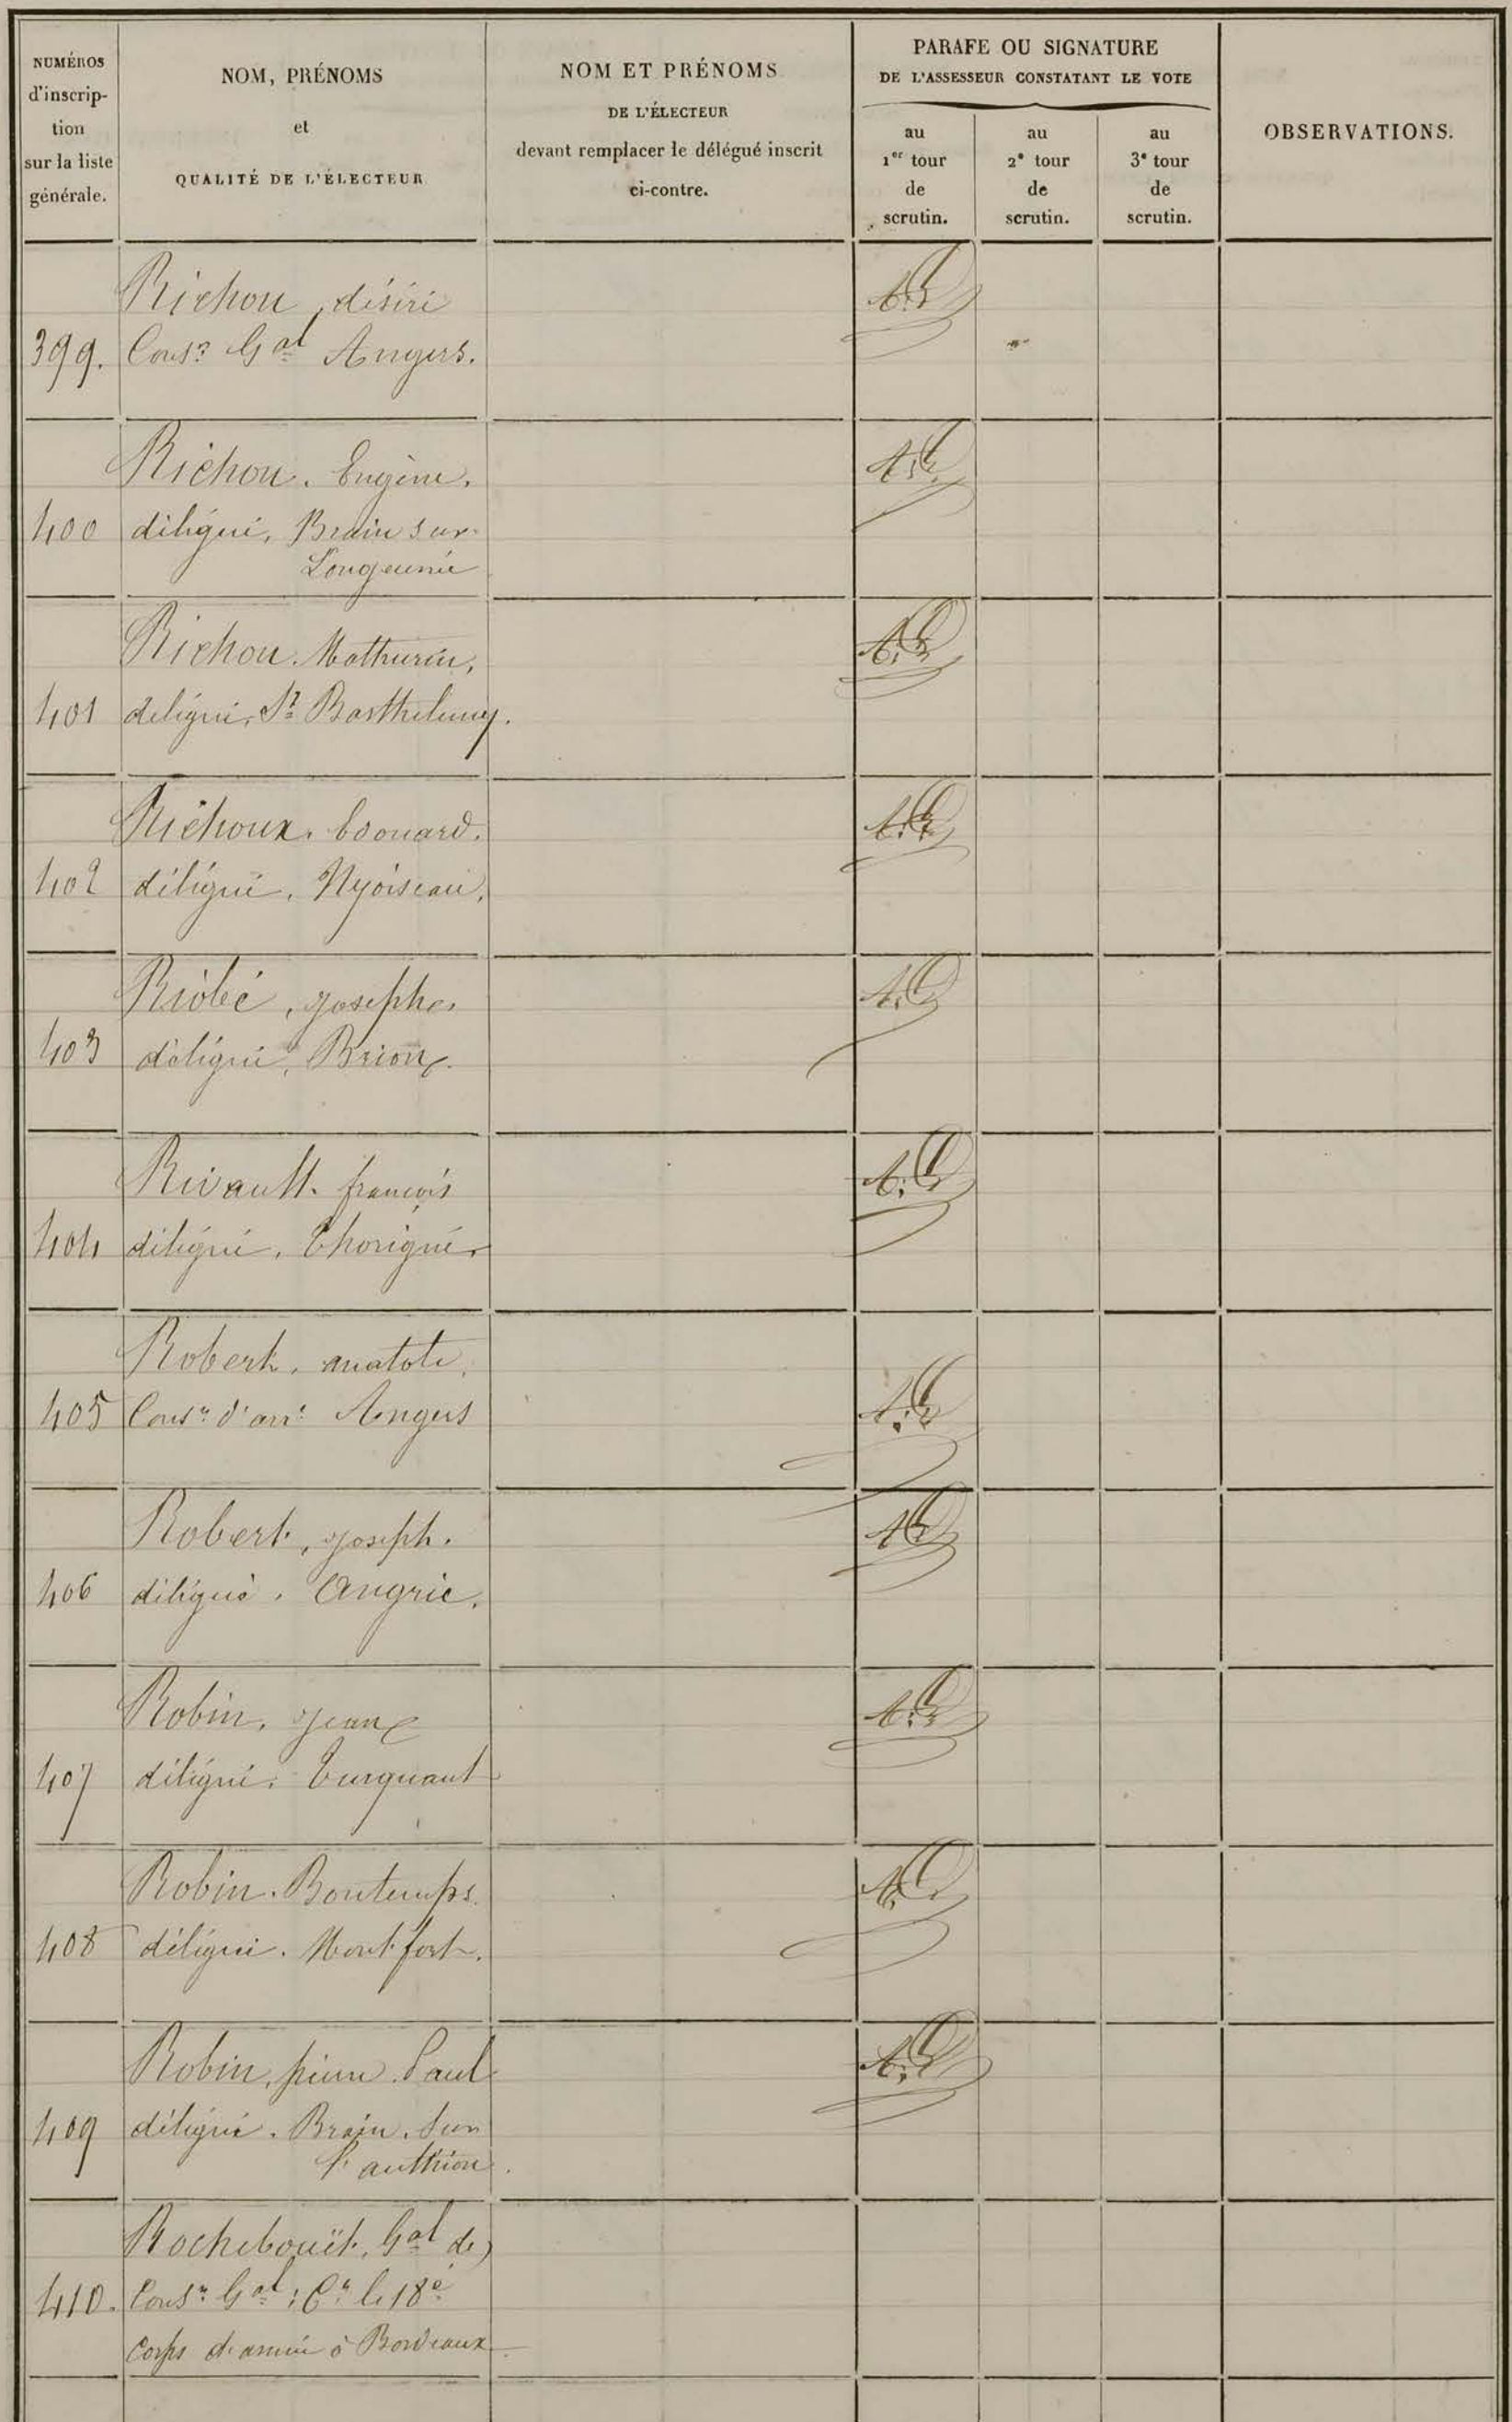 NUMÉROS
d'inscrip-
tion
sur la liste
générale.
NOM, PRÉNOMS
et
QUALITÉ DE L'ÉLECTEUR
NOM ET PRÉNOMS
DE L'ÉLECTEUR
devant remplacer le délégué inscrit
ci-contre.
PARAFE OU SIGNATURE
DE L'ASSESSEUR CONSTATANT LE VOTE
au
1er tour
de
scrutin.
au
2e tour
de
scrutin.
au
3e tour
de
scrutin.
OBSERVATIONS.
Richou, désiré
399. Consr Gal Angers.
Richou. Eugène.
400 délégué, Brain sur
Longuenée
Richou. Mathurin,
401 délégué, St Barthelemy.
Richoux. Edouard.
402 délégué, Nyoiseau,
Riobé, joseph.
403 délégué, Brion.
Rivault. françois
404 délégué, Thorigné.
Robert, anatole,
405 Consr d'arrt Angers
Robert, joseph.
406 délégué. Angrie.
Robin, jean
407 délégué. Turquant
Robin. Bontemps.
408 délégué. Montfort.
Robin, pierre. Paul
409 délégué. Brain. sur
l'authion.
Rochebouët, Gal de
410. Consr Gal; Ct le 18e
Corps d'armée à Bordeaux